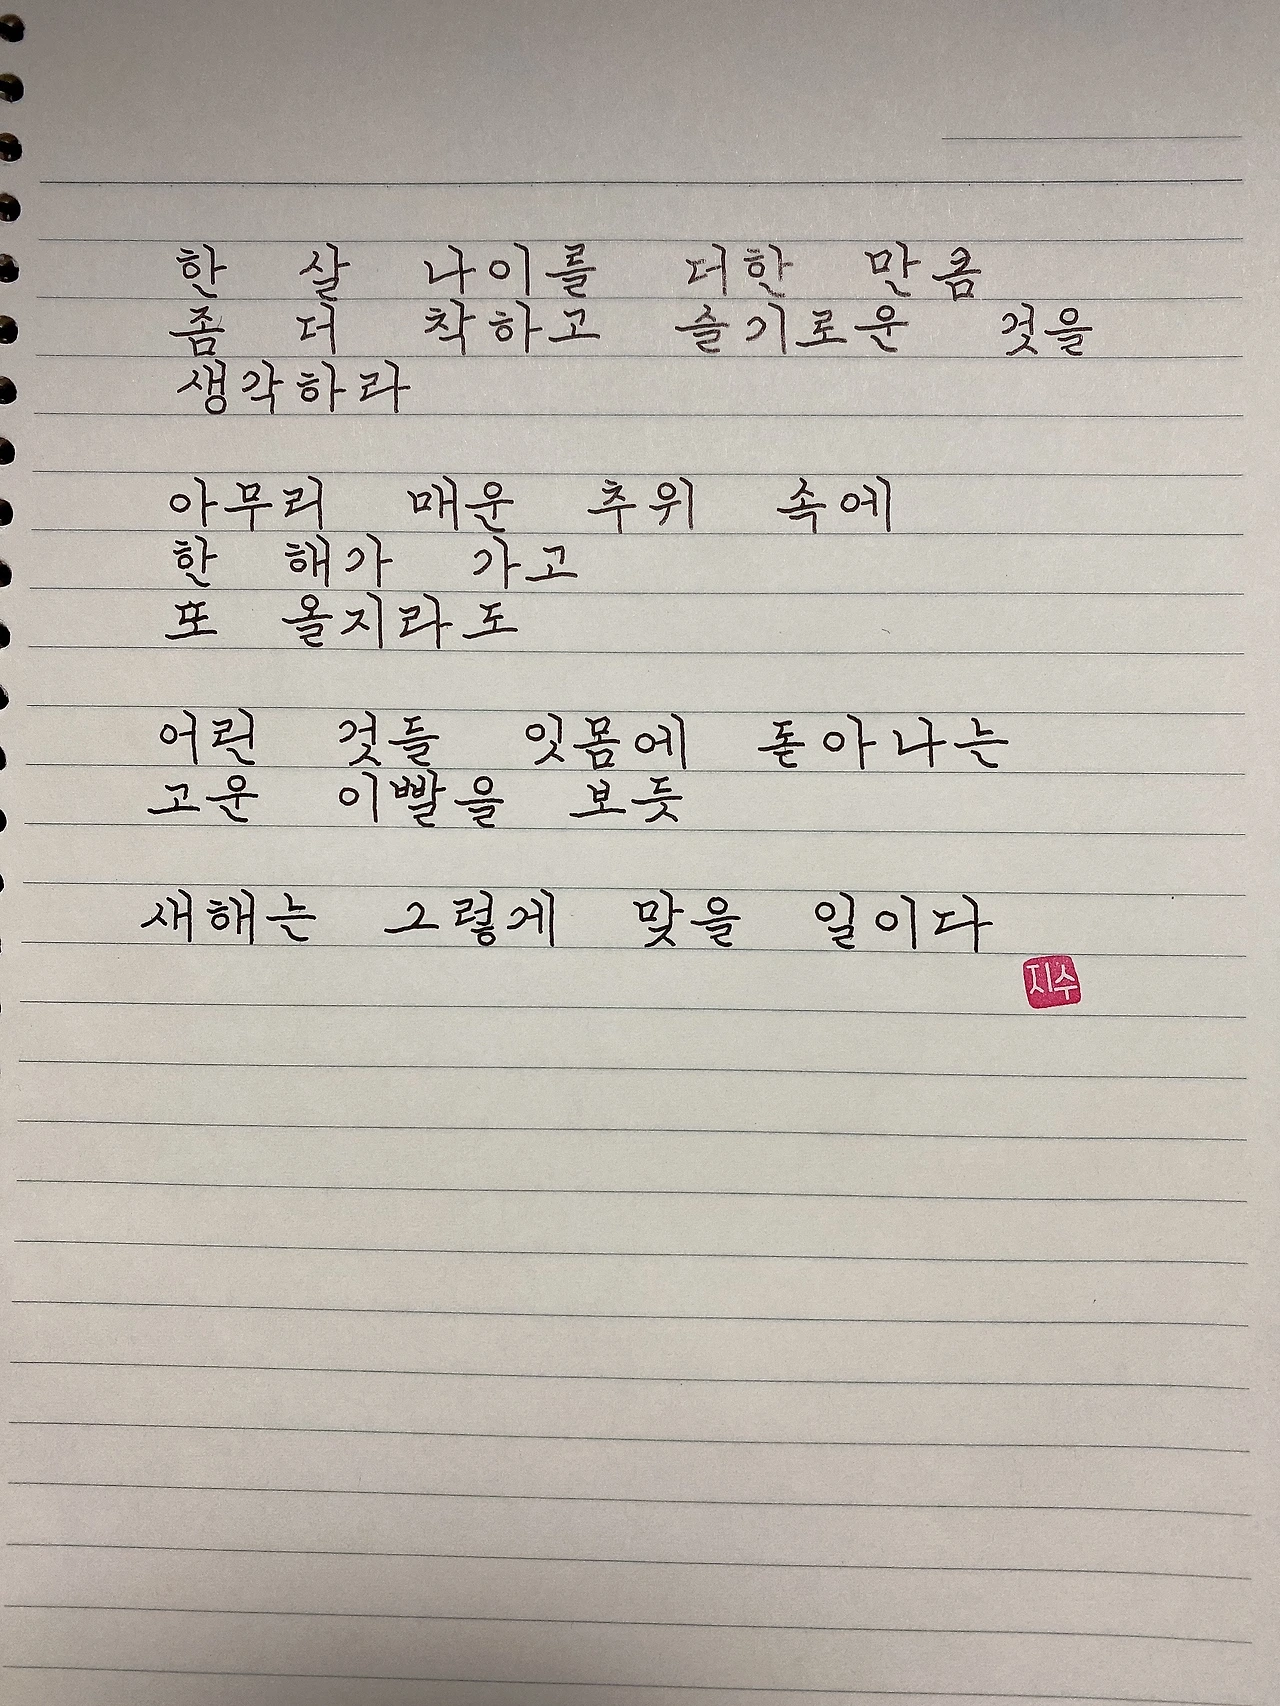 한 살 나이를 더한 만큼
좀 더 착하고 슬기로운 것을
생각하라
아무리 매운 추위 속에
한 해가 가고
또 올지라도
어린 것들 잇몸에 돋아나는
고운 이빨을 보듯
새해는 그렇게 맞을 일이다
지수